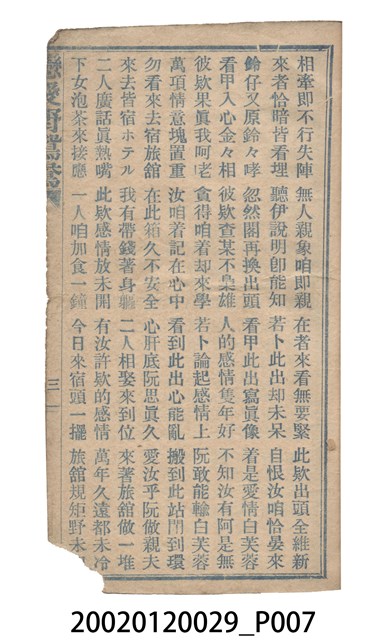 相牽即不行失陣 無人親象咱即親 在者來看無要緊 此欵出頭全維新
來者恰暗皆看埋 聽伊說明卽能知 若卜此出却未呆 自恨汝咱恰晏來
鈴仔又原鈴々哮 忽然閣再換出頭 看甲此出寫眞像 着是愛情白芙蓉
看甲入心金々相 彼欵查某不梟雄 人的感情隻年好 不知汝有阿是無
彼欵果眞我呵老 貪得咱着却來學 若卜論起感情上 阮敢能輸白芙蓉
萬項情意塊置重 汝咱着記在心中 看到此出心能亂 搬到此站門到環
勿看來去宿旅舘 在此箱久不安全 心肝底阮思眞久 愛汝乎阮做親夫
來去皆宿ホテル 我有帶錢著身軀 二人相娶來到位 來著旅舘做一堆
二人廣話眞熱嘴 此欵感情放未開 有汝許欵的感情 萬年久遠都未冷
下女泡茶來接應 一人咱加食一鐘 今日來宿頭一擺 旅舘規矩野未
三
20020120029_P007